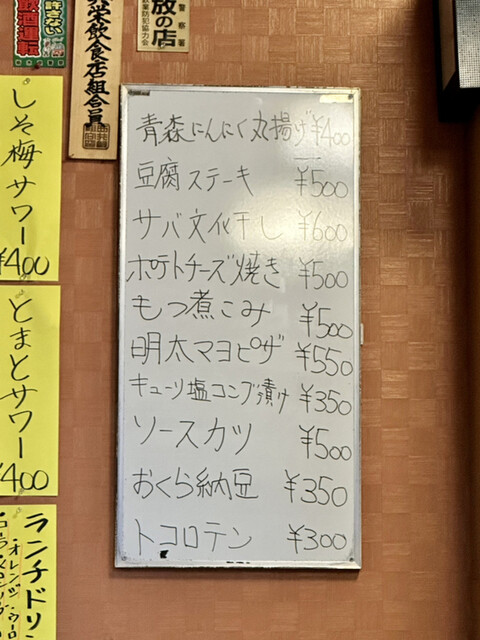 許さない
飲酒運転
米飲食店組合員
警察署
放の店
業防犯協力会
しそ梅サワー
¥400
とまとサワー
¥400
ランチドリン
・オレンジ・ウーロ
青森にんにく丸揚げ ¥400
豆腐ステーキ ¥500
サバ文化干し ¥600
ポテトチーズ焼き ¥500
もつ煮こみ ¥500
明太マヨピザ ¥550
キューリ塩コンブ漬け ¥350
ソースカツ ¥500
おくら納豆 ¥350
トコロテン ¥300